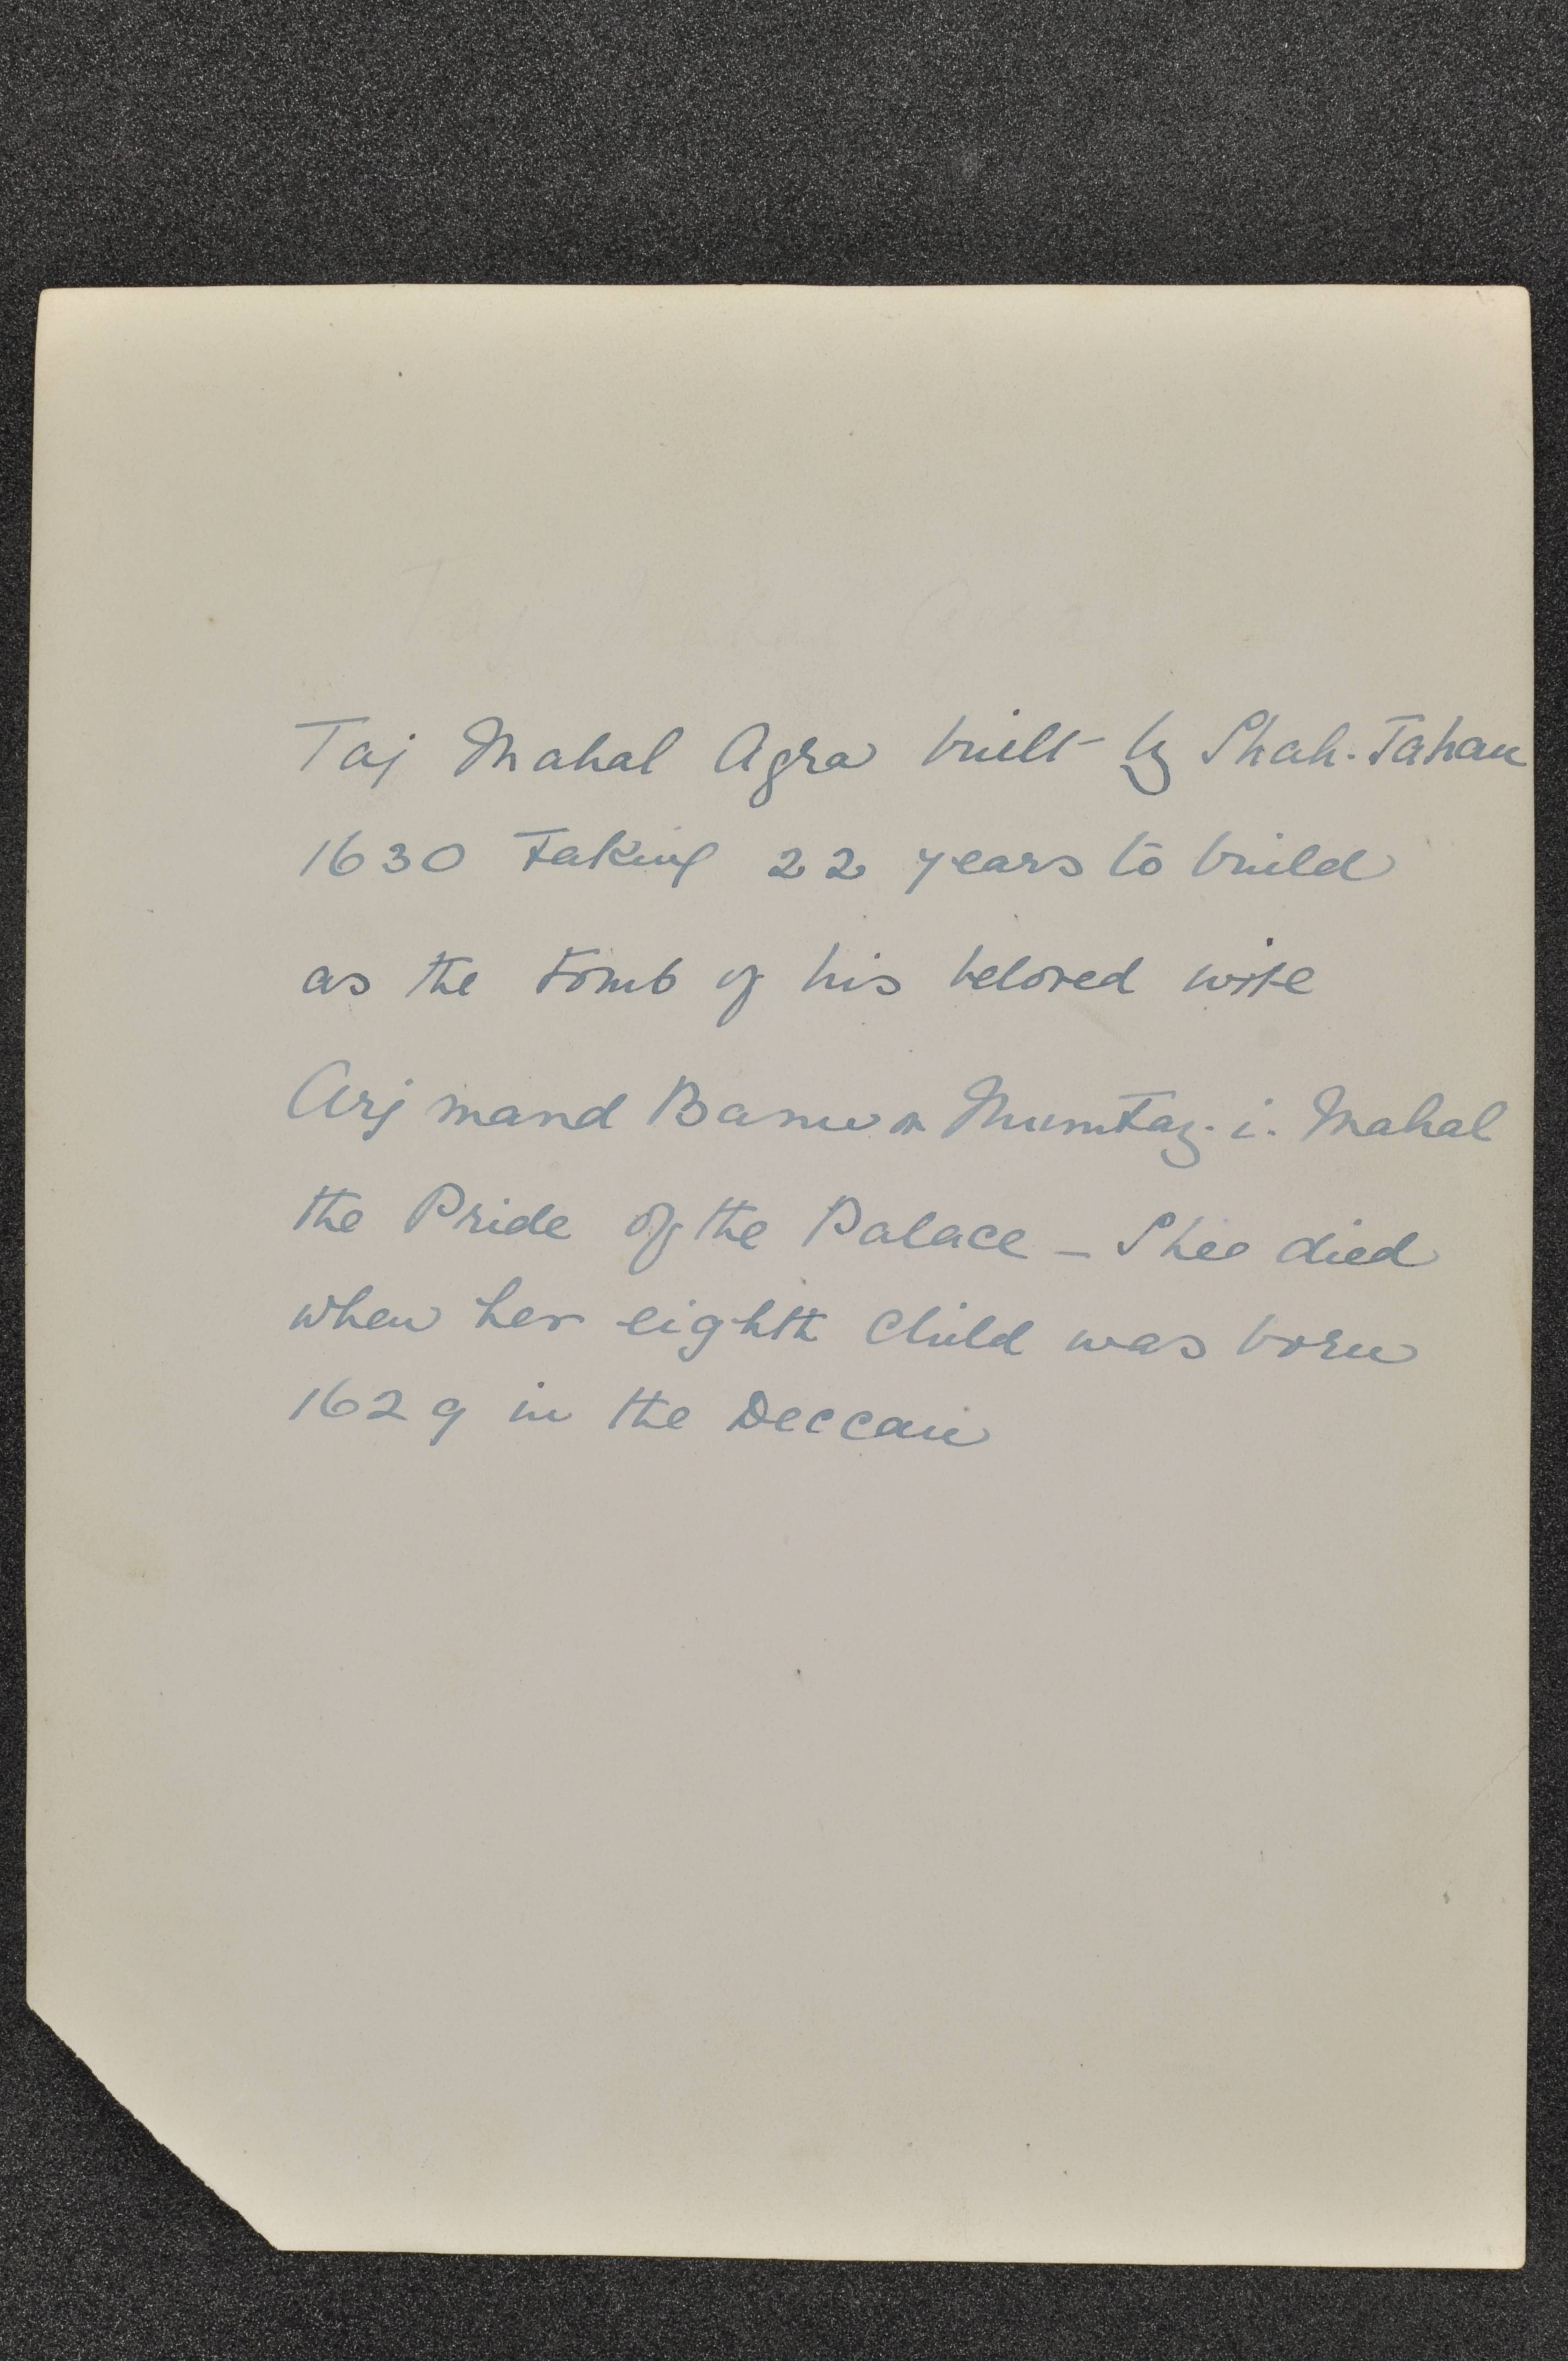 Taj Mahal Agra
Taj Mahal Agra built by Shah-Jahan
1630 taking 22 years to build
as the tomb of his beloved wife
Arj mand Banu or Mumtaz-i-Mahal
the Pride of the Palace - She died
when her eighth child was born
1629 in the Deccan